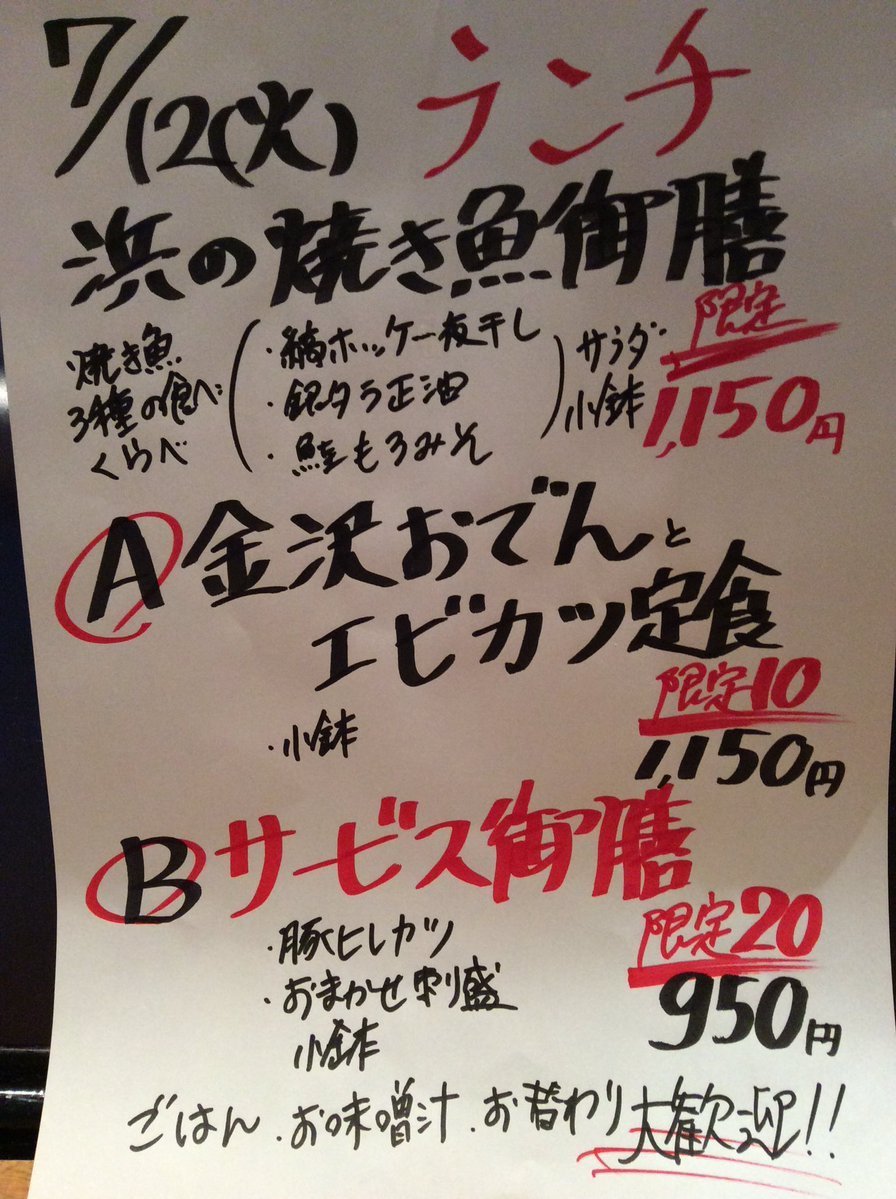 7/12(火) ランチ
浜の焼き魚御膳
限定
焼き魚
3種の食べ
くらべ
(・縞ホッケ一夜干し
・銀タラ正油
・鮭もろみそ)
サラダ
小鉢
1,150円
A 金沢おでんと
エビカツ定食
限定10
・小鉢
1,150円
B サービス御膳
限定20
・豚ヒレカツ
・おまかせ刺盛
小鉢
950円
ごはん.お味噌汁.お替わり大歓迎!!